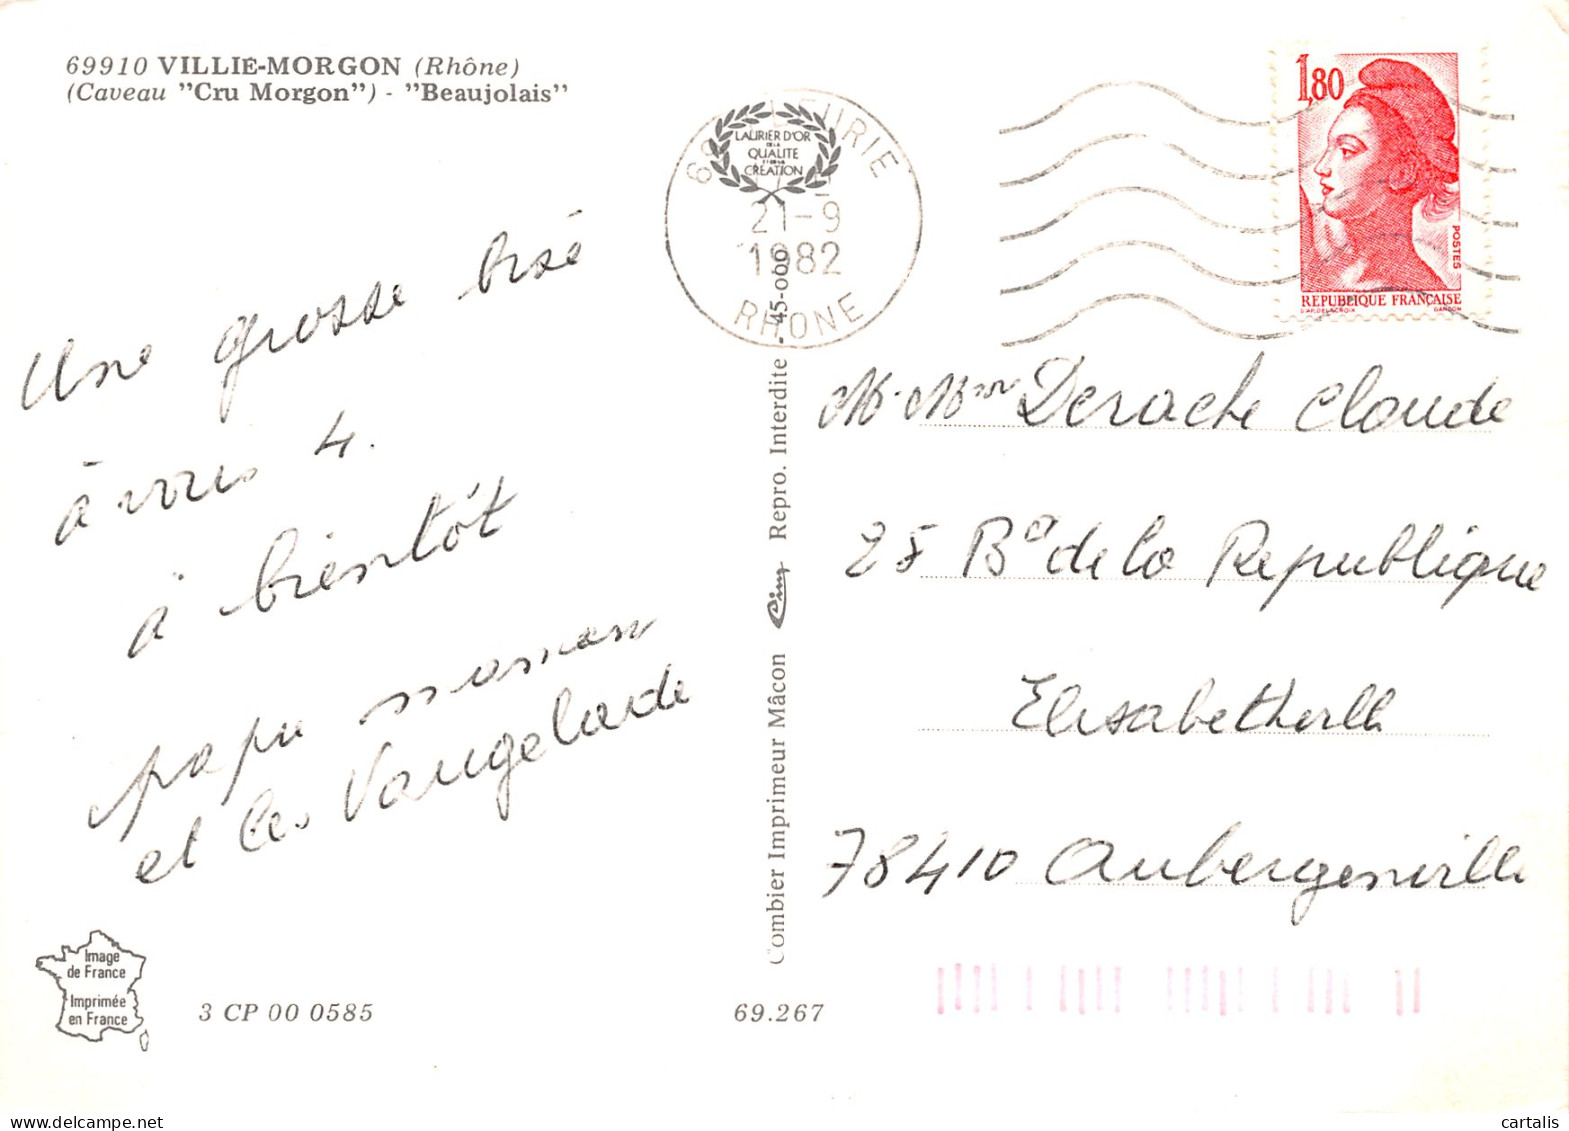 69910 VILLIE-MORGON (Rhône)
(Caveau "Cru Morgon") - "Beaujolais"
LAURIER D'OR
DE LA
QUALITE
ET DE LA
CREATION
FLEURIE
21-9
1982
RHONE
1,80
POSTES
REPUBLIQUE FRANÇAISE
D'AP. DELACROIX GANDON
Une grosse bisé
à vous 4.
à bientôt
papu maman
et les Vaugelade
Combier Imprimeur Mâcon Cim Repro. Interdite . 45-000
M. Mme Derache Claude
25 Bd de la Republique
Elisabethville
78410 Aubergenville
Image
de France
Imprimée
en France
3 CP 00 0585
69.267
cartalis